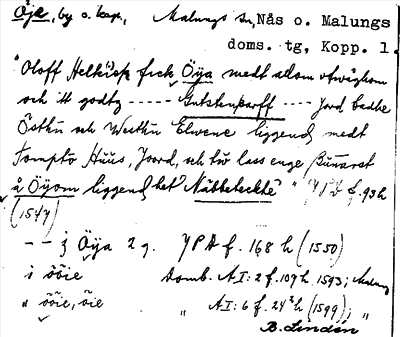 Öje, by o. kap., Malungs sn, Nås o. Malungs
doms. tg, Kopp. l.
"Oloff Helkisk fick Öya medt allom utwäghom
och itt godtz ----- Gutstuparff ---- Jord bedhe
Östhn och Westhn Elvene liggend medt
Tompto Huus, Joord, och lass enge
å Öyom liggend het Näbbeteckte" " JPA f. 93 h
(1547)
-- j Öya 2 g. JPA f. 168 h (1550)
i ööie Domb. AI:2 f. 109 h 1593; Malung
" ööie, öie " AI:6 f. 242 h (1599); "
B. Lindén